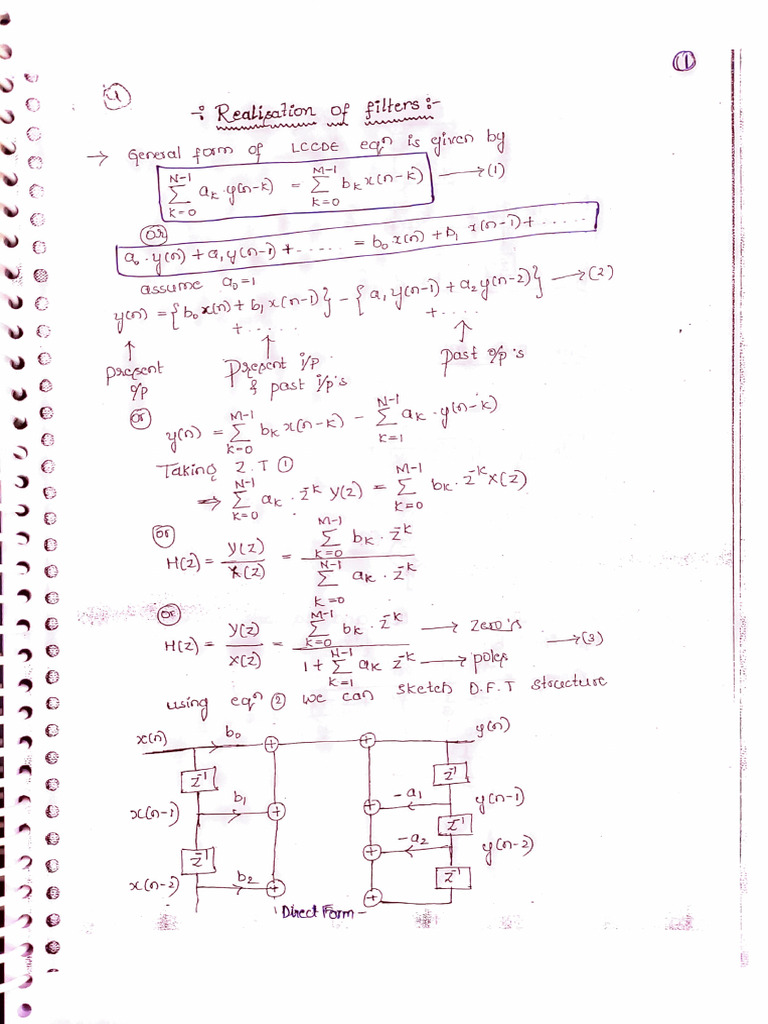 ①
4
-: Realisation of filters :-
→ General form of LCCDE eqn is given by
N-1 Σ k=0 aₖ·y(n-k) = M-1 Σ k=0 bₖx(n-k) → (1)
or
a₀·y(n)+a₁y(n-1)+...... = b₀x(n)+b₁x(n-1)+......
assume a₀=1
y(n) = {b₀x(n)+b₁x(n-1) + .....} - {a₁y(n-1)+a₂y(n-2) + ....} → (2)
↑ Present o/p
↑ Present i/p & past i/p's
↑ Past o/p's
or
y(n) = M-1 Σ k=0 bₖx(n-k) - N-1 Σ k=1 aₖ·y(n-k)
Taking Z.T ①
⇒ N-1 Σ k=0 aₖ·z⁻ᵏ Y(z) = M-1 Σ k=0 bₖ·z⁻ᵏX(z)
or
H(z) = Y(z)/X(z) = M-1 Σ k=0 bₖ·z⁻ᵏ / N-1 Σ k=0 aₖ·z⁻ᵏ
or
H(z) = Y(z)/X(z) = M-1 Σ k=0 bₖ·z⁻ᵏ → zero's / 1+ N-1 Σ k=1 aₖ z⁻ᵏ → poles → (3)
using eqn ② we can sketch D.F.I structure
x(n) b₀ + + y(n)
z⁻¹ z⁻¹
x(n-1) b₁ + + -a₁ y(n-1)
z⁻¹
z⁻¹ + -a₂ y(n-2)
z⁻¹
x(n-2) b₂ + +
Direct Form -